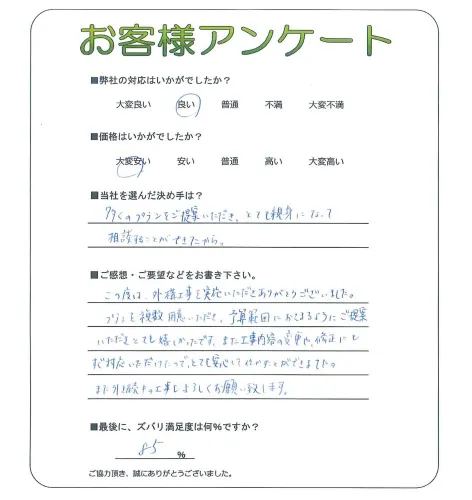 お客様アンケート
■弊社の対応はいかがでしたか？
大変良い 良い 普通 不満 大変不満
■価格はいかがでしたか？
大変安い 安い 普通 高い 大変高い
■当社を選んだ決め手は？
多くのプランをご提案いただき、とても親身になって
相談することができたから。
■ご感想・ご要望などをお書き下さい。
この度は、外構工事を実施いただきありがとうございました。
プランを複数用意いただき、予算範囲におさまるようにご提案
いただきとても嬉しかったです。また工事内容の変更や、修正にも
ご対応いただけたので、とても安心して任せることができました。
また外構の工事もよろしくお願い致します。
■最後に、ズバリ満足度は何%ですか？
85 %
ご協力頂き、誠にありがとうございました。